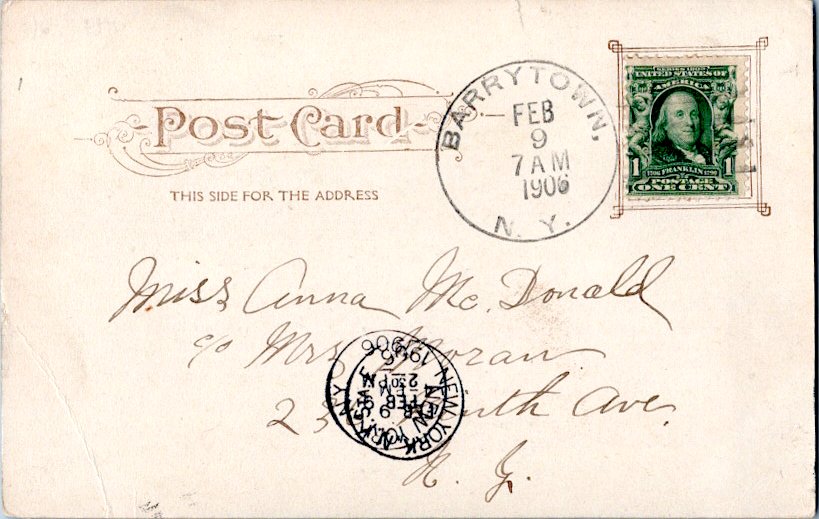 Post Card
THIS SIDE FOR THE ADDRESS
BARRYTOWN,
FEB
9
7 AM
1906
N. Y.
SERIES 1902
UNITED STATES OF
AMERICA
1706 FRANKLIN 1790
1 POSTAGE 1
ONE CENT
Miss Anna Mc. Donald
c/o Mrs Moran
Ave.
N. Y.
NEW YORK, N.Y.
FEB 9
2 30 PM
1906